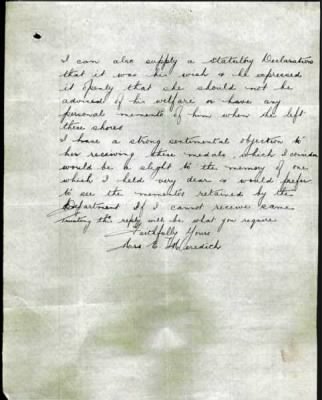 I can also supply a Statutory Declaration
that it was his wish & he expressed
it openly that she should not be
advised of his welfare or have any
personal memento of him when he left
these shores
I have a strong sentimental objection to
her receiving these medals, which I consider
would be a slight to the memory of one
which I held very dear & would prefer
to see the mementos retained by the
Department If I cannot receive same
Trusting this reply will be what you require
Faithfully Yours
Mrs E Meredich